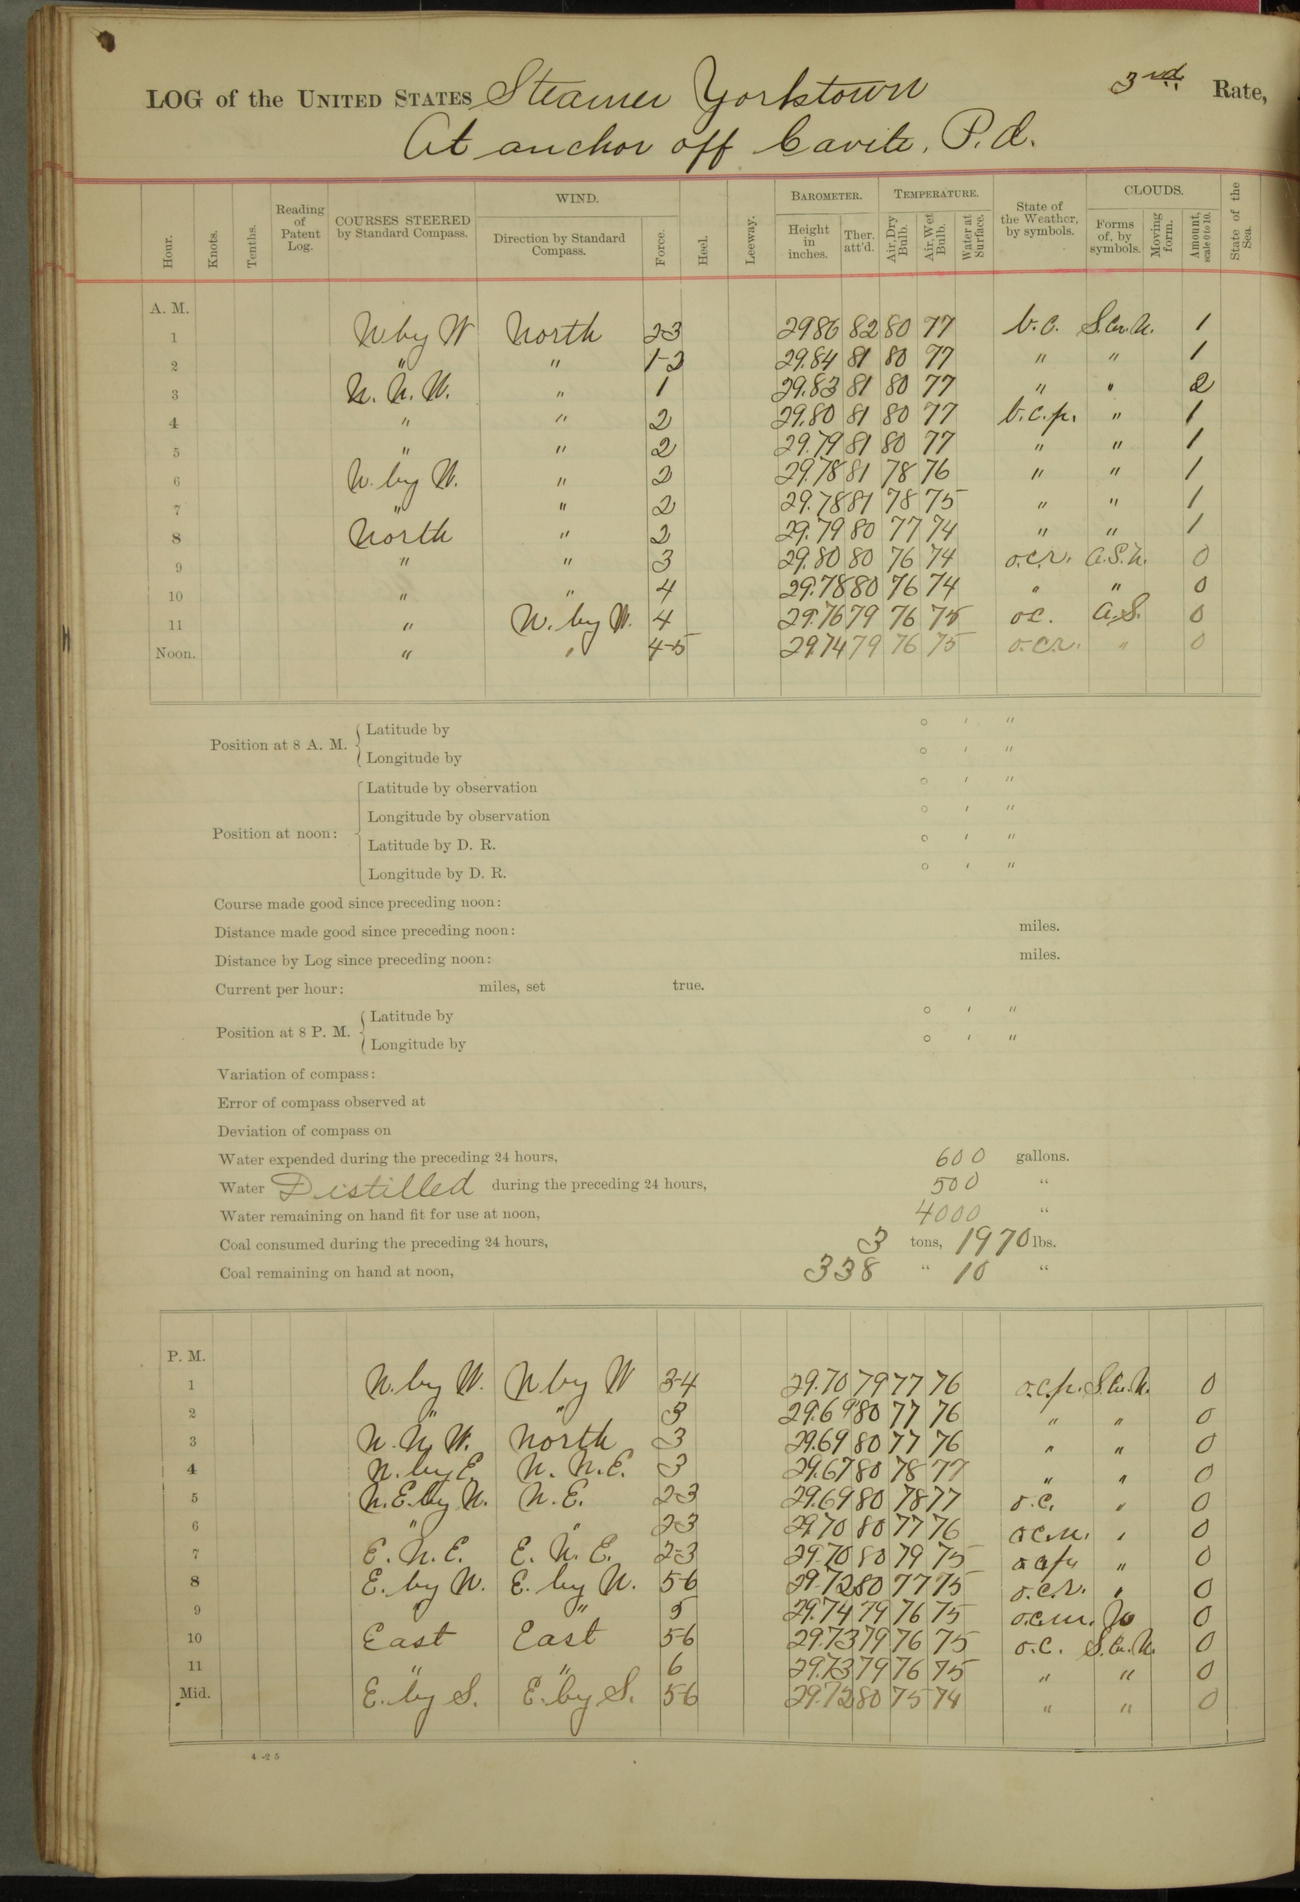 LOG of the UNITED STATES Steamer Yorktown 3rd Rate,
At anchor off Cavite, P.I.
Hour. Knots. Tenths. Reading of Patent Log. COURSES STEERED by Standard Compass. WIND. Direction by Standard Compass. Force. Heel. Leeway. BAROMETER. Height in inches. Ther. att'd. TEMPERATURE. Air, Dry Bulb. Air, Wet Bulb. Water at Surface. State of the Weather, by symbols. CLOUDS. Forms of, by symbols. Moving form. Amount, scale 0 to 10. State of the Sea.
A. M.
1 N by W North 2-3 29.86 82 80 77 b.c. S.Cu.N. 1
2 " " 1-2 29.84 81 80 77 " " 1
3 N.N.W. " 1 29.83 81 80 77 " " 2
4 " " 2 29.80 81 80 77 b.c.p. " 1
5 " " 2 29.79 81 80 77 " " 1
6 N. by W. " 2 29.78 81 78 76 " " 1
7 " " 2 29.78 81 78 75 " " 1
8 North " 2 29.79 80 77 74 " " 1
9 " " 3 29.80 80 76 74 o.c.r. A.S.N. 0
10 " " 4 29.78 80 76 74 " " 0
11 " N. by W. 4 29.76 79 76 75 o.c. A.S. 0
Noon. " " 4-5 29.74 79 76 75 o.c.r. " 0
Position at 8 A. M. Latitude by ° ′ ″
Longitude by ° ′ ″
Position at noon: Latitude by observation ° ′ ″
Longitude by observation ° ′ ″
Latitude by D. R. ° ′ ″
Longitude by D. R. ° ′ ″
Course made good since preceding noon:
Distance made good since preceding noon: miles.
Distance by Log since preceding noon: miles.
Current per hour: miles, set true.
Position at 8 P. M. Latitude by ° ′ ″
Longitude by ° ′ ″
Variation of compass:
Error of compass observed at
Deviation of compass on
Water expended during the preceding 24 hours, 600 gallons.
Water Distilled during the preceding 24 hours, 500 "
Water remaining on hand fit for use at noon, 4000 "
Coal consumed during the preceding 24 hours, 3 tons, 1970 lbs.
Coal remaining on hand at noon, 338 " 10 "
P. M.
1 N. by W. N by W 3-4 29.70 79 77 76 o.c.p. S.Cu.N. 0
2 " " 3 29.69 80 77 76 " " 0
3 N.N.W. North 3 29.69 80 77 76 " " 0
4 N. by E. N.N.E. 3 29.67 80 78 77 " " 0
5 N.E. by N. N.E. 2-3 29.69 80 78 77 o.c. " 0
6 " " 2-3 29.70 80 77 76 o.c.m. " 0
7 E.N.E. E.N.E. 2-3 29.70 80 79 75 " 0
8 E. by N. E. by N. 5-6 29.72 80 77 75 o.c.r. " 0
9 " " 5 29.74 79 76 75 o.c.m. N 0
10 East East 5-6 29.73 79 76 75 o.c. S.Cu.N. 0
11 " " 6 29.73 79 76 75 " " 0
Mid. E. by S. E. by S. 5-6 29.72 80 75 74 " " 0
4-25